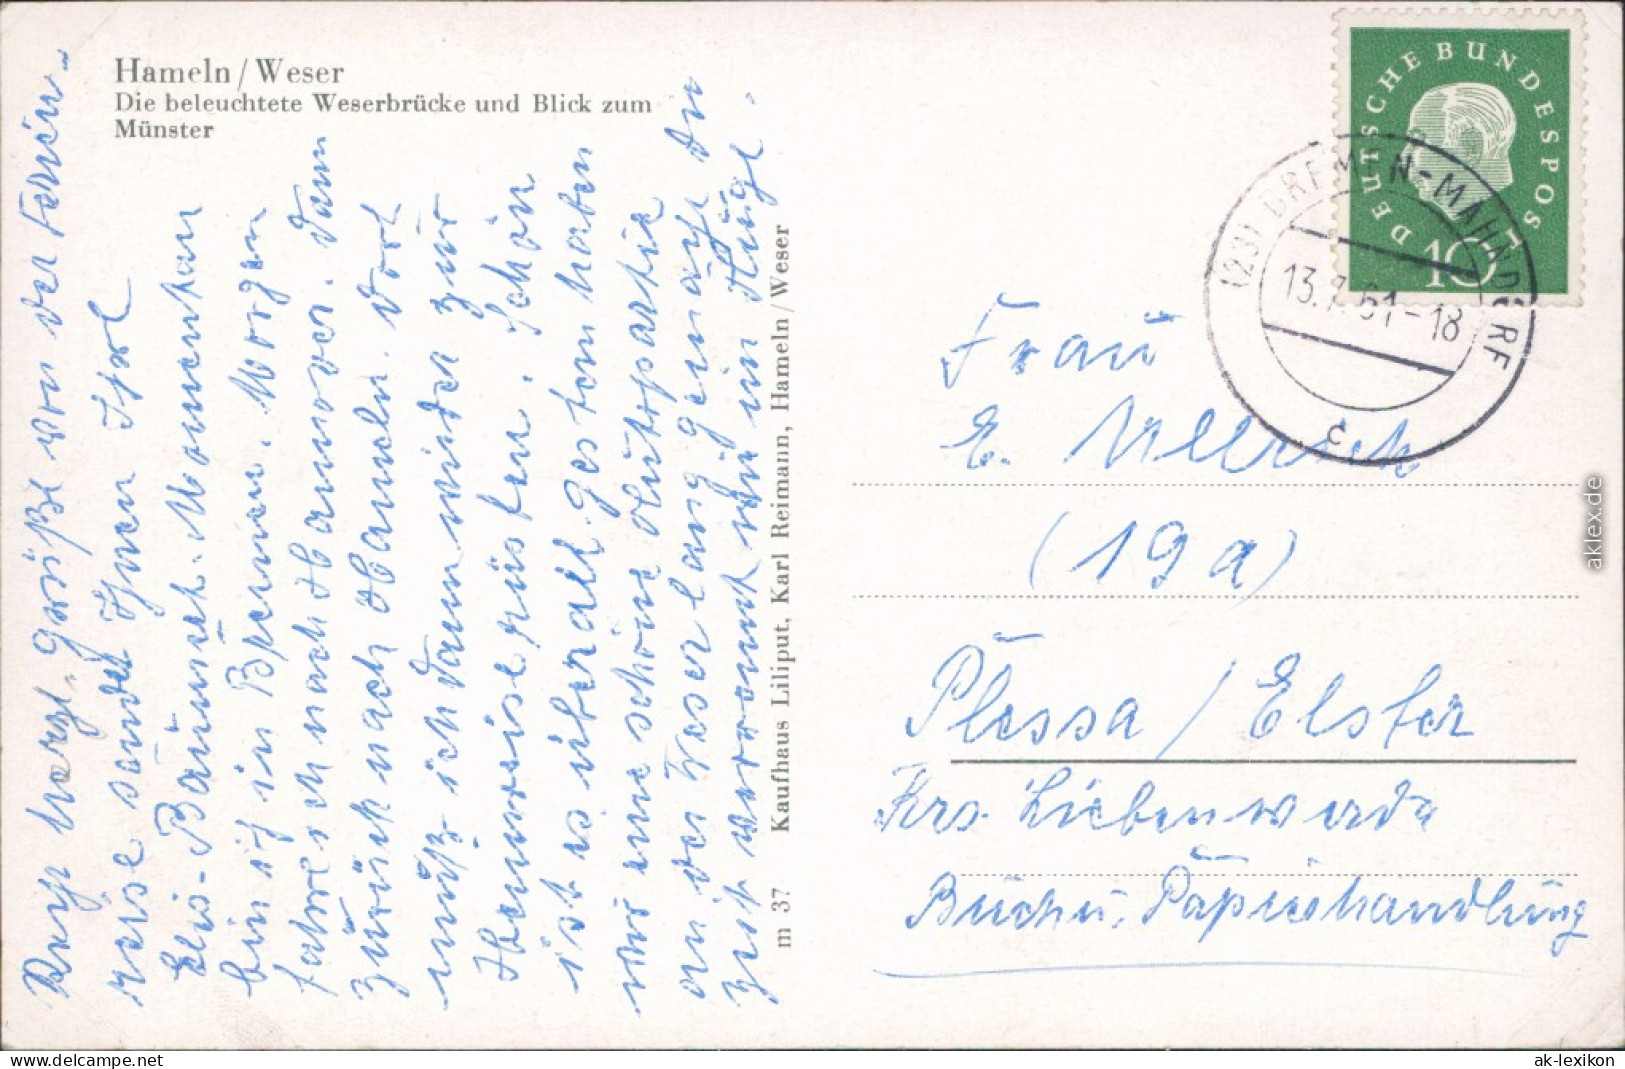 Hameln/Weser
Die beleuchtete Weserbrücke und Blick zum
Münster
Recht herzl. Grüße von der Ferien-
reise sendet Ihnen Ihre
Elis. Bäumert. Momentan
bin ich in Bremen. Morgen
fahre ich nach Hannover. Dann
zurück nach Hameln. Dort
muß ich dann wieder zur
Heimreise rüsten. Schön
ist es überall. Gestern haben
wir eine schöne Autopartie
an der Weser lang gemacht. Die
Zeit verrinnt wie im Fluge.
m 37 Kaufhaus Liliput, Karl Reimann, Hameln/Weser
DEUTSCHE BUNDESPOST
10
(23) BREMEN-MAHNDORF
13.7.61-18
c
Frau
E.
(19a)
Plessa / Elster
Krs. Liebenwerda
Buch u. Papierhandlung
aklex.de
ak-ansichtskarten.de
ak-lexikon